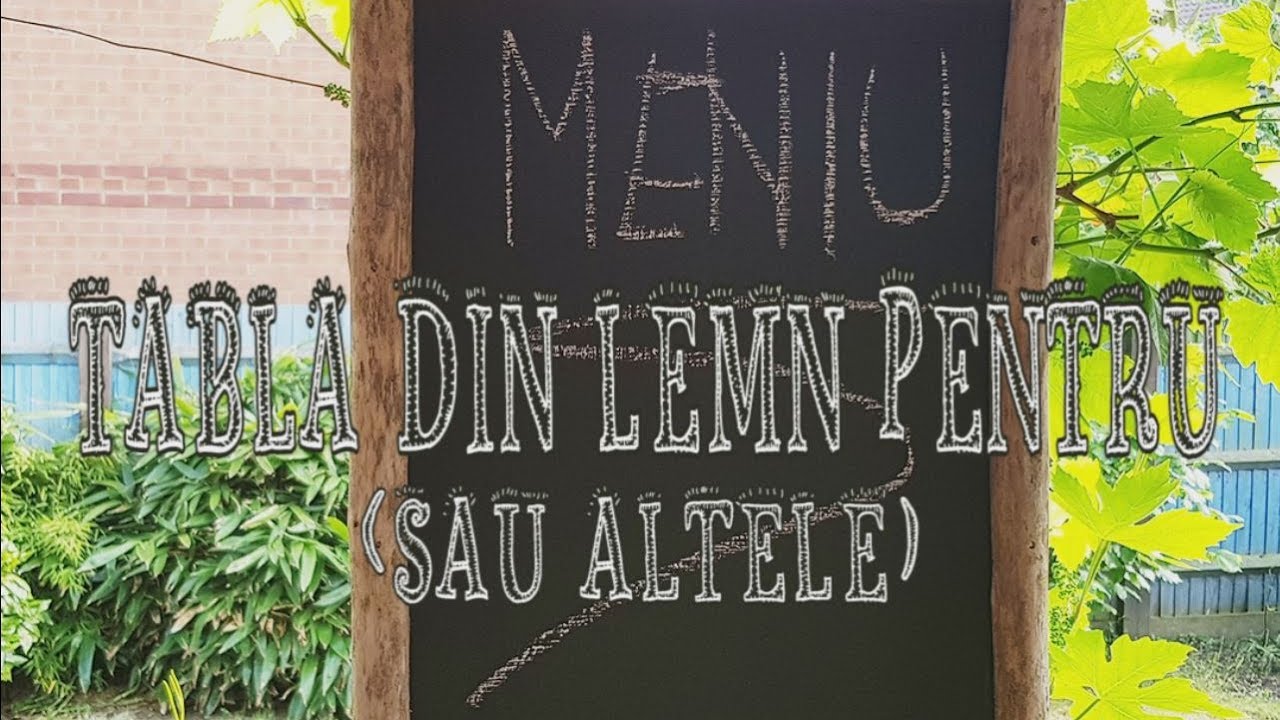 MENIU
TABLA DIN LEMN PENTRU
(SAU ALTELE)